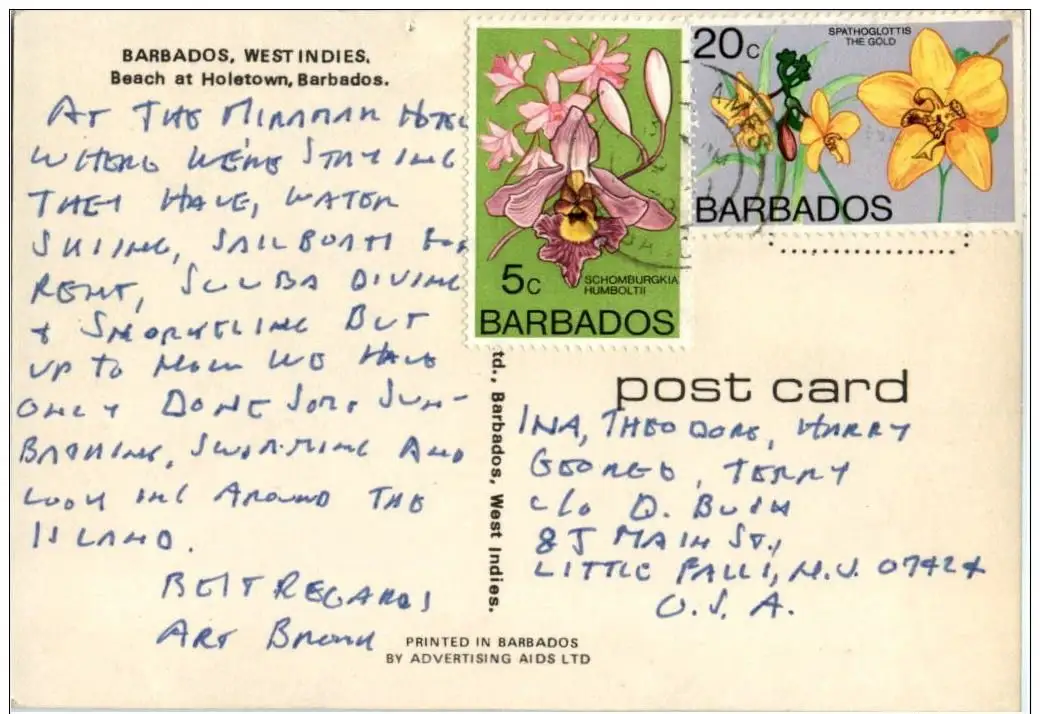 BARBADOS, WEST INDIES.
Beach at Holetown, Barbados.
AT THE MIRAMAR HOTEL
WHERE WE'RE STAYING
THEY HAVE, WATER
SKIING, SAILBOATS FOR
RENT, SCUBA DIVING
& SNORKELING BUT
UP TO NOW WE HAVE
ONLY DONE SOME SUN-
BATHING, SWIMMING AND
LOOKING AROUND THE
ISLAND.
BEST REGARDS
ART BROWN
5c
SCHOMBURGKIA
HUMBOLTII
BARBADOS
20c
SPATHOGLOTTIS
THE GOLD
BARBADOS
td., Barbados, West Indies.
post card
INA, THEODORE, HARRY
GEORGE, TERRY
c/o D. BUSH
85 MAIN ST.,
LITTLE FALLS, N.J. 07424
U.S.A.
PRINTED IN BARBADOS
BY ADVERTISING AIDS LTD